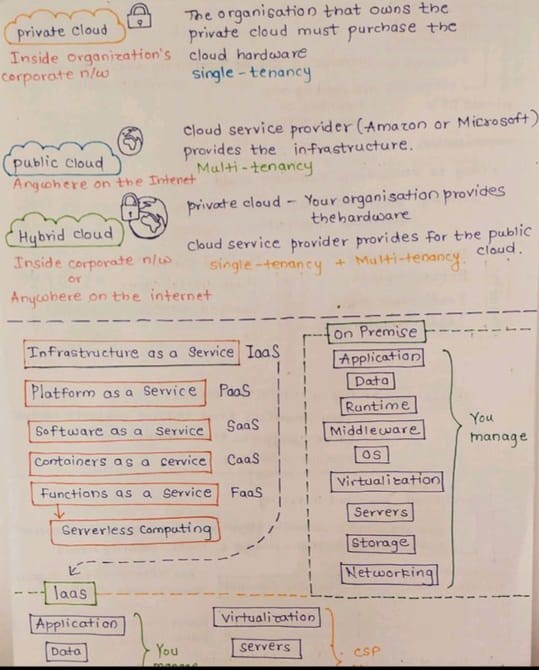 private cloud
Inside Organization's
corporate n/w
The organisation that owns the
private cloud must purchase the
cloud hardware
single-tenancy
public cloud
Anywhere on the Internet
cloud service provider (Amazon or Microsoft)
provides the infrastructure.
Multi-tenancy
Hybrid cloud
Inside corporate n/w
or
Anywhere on the internet
private cloud - Your organisation provides
the hardware
cloud service provider provides for the public
cloud.
single-tenancy + Multi-tenancy
Infrastructure as a Service IaaS
Platform as a Service PaaS
Software as a Service SaaS
Containers as a service CaaS
Functions as a Service FaaS
Serverless Computing
On Premise
Application
Data
Runtime
Middleware
OS
Virtualization
Servers
Storage
Networking
You
manage
Iaas
Application
Data
You
manage
Virtualization
servers
CSP